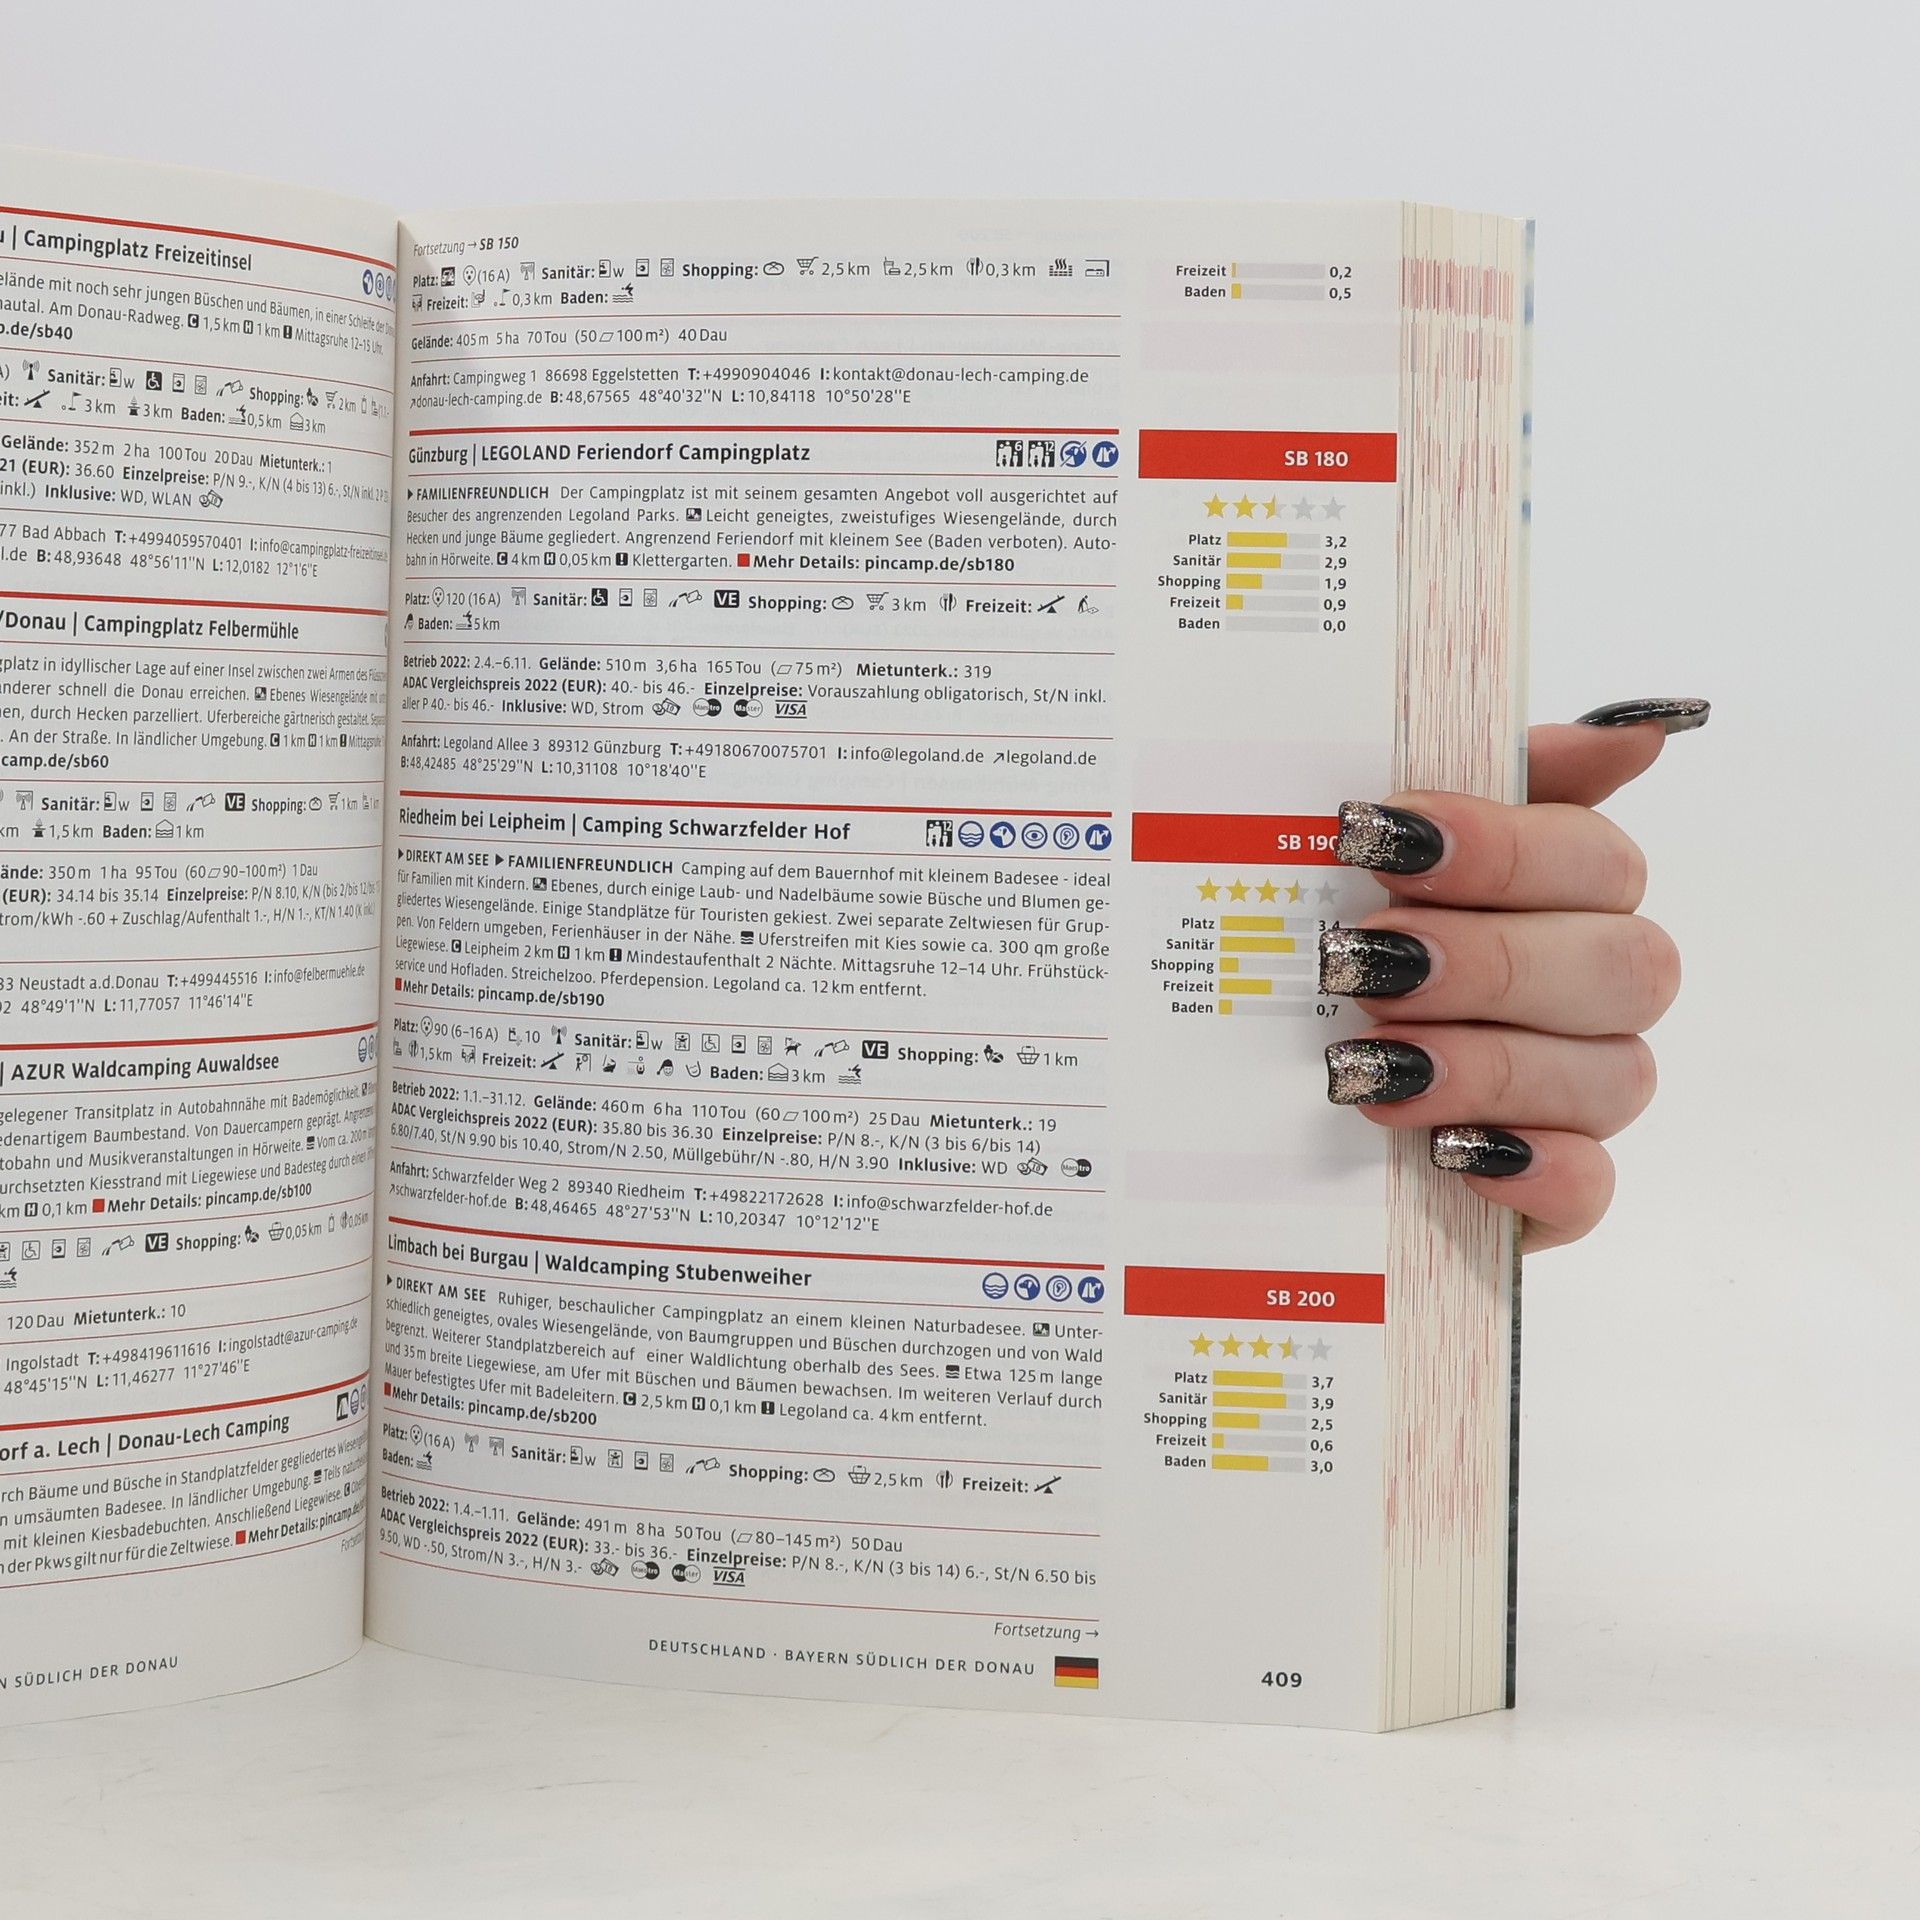 Campingplatz Freizeitinsel
elände mit noch sehr jungen Büschen und Bäumen, in einer Schleife der
nautal. Am Donau-Radweg. 1,5 km 1 km Mittagsruhe 12–15 Uhr.
p.de/sb40
Sanitär: w Shopping: 2 km
eit: 3 km 3 km Baden: 0,5 km 3 km
Gelände: 352 m 2 ha 100 Tou 20 Dau Mietunterk.: 1
21 (EUR): 36.60 Einzelpreise: P/N 9.-, K/N (4 bis 13) 6.-, St/N inkl.
inkl.) Inklusive: WD, WLAN
77 Bad Abbach T:+4994059570401 I:info@campingplatz-freizeitinsel.
l.de B:48,93648 48°56'11''N L:12,0182 12°1'6''E
/Donau | Campingplatz Felbermühle
gplatz in idyllischer Lage auf einer Insel zwischen zwei Armen des
anderer schnell die Donau erreichen. Ebenes Wiesengelände mit
en, durch Hecken parzelliert. Uferbereiche gärtnerisch gestaltet.
. An der Straße. In ländlicher Umgebung. 1 km 1 km
camp.de/sb60
Sanitär: w VE Shopping: 1 km
km 1,5 km Baden: 1 km
ände: 350 m 1 ha 95 Tou (60 90–100 m²) 1 Dau
(EUR): 34.14 bis 35.14 Einzelpreise: P/N 8.10, K/N
trom/kWh -.60 + Zuschlag/Aufenthalt 1.-, H/N 1.-, KT/N 1.40
33 Neustadt a.d.Donau T:+499445516 I:info@felbermuehle.de
92 48°49'1''N L:11,77057 11°46'14''E
| AZUR Waldcamping Auwaldsee
gelegener Transitplatz in Autobahnnähe mit Bademöglichkeit.
edenartigem Baumbestand. Von Dauercampern geprägt.
tobahn und Musikveranstaltungen in Hörweite. Vom ca. 200 m
urchsetzten Kiesstrand mit Liegewiese und Badesteg durch einen
km 0,1 km Mehr Details: pincamp.de/sb100
VE Shopping: 0,05 km
120 Dau Mietunterk.: 10
Ingolstadt T:+498419611616 I:ingolstadt@azur-camping.de
48°45'15''N L:11,46277 11°27'46''E
orf a. Lech | Donau-Lech Camping
rch Bäume und Büsche in Standplatzfelder gegliedertes
n umsäumten Badesee. In ländlicher Umgebung. Teils
mit kleinen Kiesbadebuchten. Anschließend Liegewiese.
n der Pkws gilt nur für die Zeltwiese. Mehr Details: pincamp.de/
N SÜDLICH DER DONAU
Fortsetzung → SB 150
Platz: (16 A) Sanitär: w Shopping: 2,5 km 2,5 km 0,3 km
Freizeit: 0,3 km Baden:
Freizeit 0,2
Baden 0,5
Gelände: 405 m 5 ha 70 Tou (50 100 m²) 40 Dau
Anfahrt: Campingweg 1 86698 Eggelstetten T:+4990904046 I:kontakt@donau-lech-camping.de
↗donau-lech-camping.de B:48,67565 48°40'32''N L:10,84118 10°50'28''E
Günzburg | LEGOLAND Feriendorf Campingplatz
SB 180
▶ FAMILIENFREUNDLICH Der Campingplatz ist mit seinem gesamten Angebot voll ausgerichtet auf
Besucher des angrenzenden Legoland Parks. Leicht geneigtes, zweistufiges Wiesengelände, durch
Hecken und junge Bäume gegliedert. Angrenzend Feriendorf mit kleinem See (Baden verboten). Auto-
bahn in Hörweite. C 4 km H 0,05 km ! Klettergarten. Mehr Details: pincamp.de/sb180
Platz 3,2
Sanitär 2,9
Shopping 1,9
Freizeit 0,9
Baden 0,0
Platz: 120 (16 A) Sanitär: VE Shopping: 3 km Freizeit:
Baden: 5 km
Betrieb 2022: 2.4.–6.11. Gelände: 510 m 3,6 ha 165 Tou (75 m²) Mietunterk.: 319
ADAC Vergleichspreis 2022 (EUR): 40.- bis 46.- Einzelpreise: Vorauszahlung obligatorisch, St/N inkl.
aller P 40.- bis 46.- Inklusive: WD, Strom Maestro Master VISA
Anfahrt: Legoland Allee 3 89312 Günzburg T:+49180670075701 I:info@legoland.de ↗legoland.de
B:48,42485 48°25'29''N L:10,31108 10°18'40''E
Riedheim bei Leipheim | Camping Schwarzfelder Hof
SB 190
▶ DIREKT AM SEE ▶ FAMILIENFREUNDLICH Camping auf dem Bauernhof mit kleinem Badesee - ideal
für Familien mit Kindern. Ebenes, durch einige Laub- und Nadelbäume sowie Büsche und Blumen ge-
gliedertes Wiesengelände. Einige Standplätze für Touristen gekiest. Zwei separate Zeltwiesen für Grup-
pen. Von Feldern umgeben, Ferienhäuser in der Nähe. Uferstreifen mit Kies sowie ca. 300 qm große
Liegewiese. C Leipheim 2 km H 1 km ! Mindestaufenthalt 2 Nächte. Mittagsruhe 12–14 Uhr. Frühstück-
service und Hofladen. Streichelzoo. Pferdepension. Legoland ca. 12 km entfernt.
Mehr Details: pincamp.de/sb190
Platz 3,4
Sanitär
Shopping
Freizeit
Baden 0,7
Platz: 90 (6–16 A) 10 Sanitär: w VE Shopping: 1 km
1,5 km Freizeit: Baden: 3 km
Betrieb 2022: 1.1.–31.12. Gelände: 460 m 6 ha 110 Tou (60 100 m²) 25 Dau Mietunterk.: 19
ADAC Vergleichspreis 2022 (EUR): 35.80 bis 36.30 Einzelpreise: P/N 8.-, K/N (3 bis 6/bis 14)
6.80/7.40, St/N 9.90 bis 10.40, Strom/N 2.50, Müllgebühr/N -.80, H/N 3.90 Inklusive: WD Maestro
Anfahrt: Schwarzfelder Weg 2 89340 Riedheim T:+49822172628 I:info@schwarzfelder-hof.de
↗schwarzfelder-hof.de B:48,46465 48°27'53''N L:10,20347 10°12'12''E
Limbach bei Burgau | Waldcamping Stubenweiher
SB 200
▶ DIREKT AM SEE Ruhiger, beschaulicher Campingplatz an einem kleinen Naturbadesee. Unter-
schiedlich geneigtes, ovales Wiesengelände, von Baumgruppen und Büschen durchzogen und von Wald
begrenzt. Weiterer Standplatzbereich auf einer Waldlichtung oberhalb des Sees. Etwa 125 m lange
und 35 m breite Liegewiese, am Ufer mit Büschen und Bäumen bewachsen. Im weiteren Verlauf durch
Mauer befestigtes Ufer mit Badeleitern. C 2,5 km H 0,1 km ! Legoland ca. 4 km entfernt.
Mehr Details: pincamp.de/sb200
Platz 3,7
Sanitär 3,9
Shopping 2,5
Freizeit 0,6
Baden 3,0
Platz: (16 A) Sanitär: w Shopping: 2,5 km Freizeit:
Baden:
Betrieb 2022: 1.4.–1.11. Gelände: 491 m 8 ha 50 Tou (80–145 m²) 50 Dau
ADAC Vergleichspreis 2022 (EUR): 33.- bis 36.- Einzelpreise: P/N 8.-, K/N (3 bis 14) 6.-, St/N 6.50 bis
9.50, WD -.50, Strom/N 3.-, H/N 3.- Maestro Master VISA
Fortsetzung →
DEUTSCHLAND · BAYERN SÜDLICH DER DONAU
409